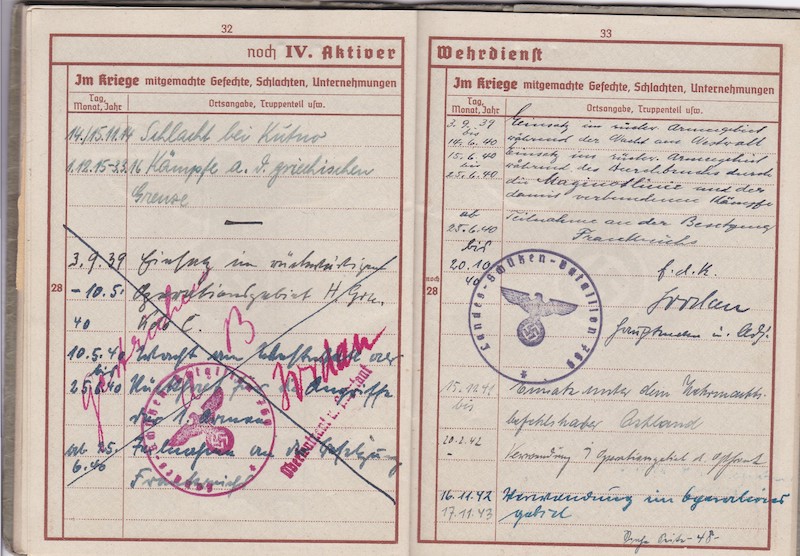 32
noch IV. Aktiver
Im Kriege mitgemachte Gefechte, Schlachten, Unternehmungen
Tag, Monat, Jahr
Ortsangabe, Truppenteil usw.
14./15.11.14 Schlacht bei Kutno
1.12.15-3.3.16 Kämpfe a. d. griechischen
Grenze
3.9.39 Einsatz im rückwärtigen
- 10.5. Operationsgebiet H.Gru.
40 Kdo C.
10.5.40 Wacht am Westwall oder
bis
25.6.40 für die Angriffe
der 1. Armee
ab 25. Teilnahme an der Besetzung
6.40 Frankreich
28
gestrichen
B
Jordan
Oberleutnant u. Adjutant
33
Wehrdienst
Im Kriege mitgemachte Gefechte, Schlachten, Unternehmungen
Tag, Monat, Jahr
Ortsangabe, Truppenteil usw.
3.9.39 Einsatz im rückw. Armeegebiet
bis während der Wacht am Westwall
14.6.40
15.6.40 Einsatz im rückw. Armeegebiet
bis während des Durchbruchs durch
25.6.40 die Maginotlinie und der
damit verbundenen Kämpfe
ab Teilnahme an der Besetzung
25.6.40 Frankreichs
bis
20.10 f.d.R.
40
Jordan
Hauptmann u. Adj.
noch
28
Landes-Schützen-Bataillon
15.12.41 Einsatz unter dem Wehrmachts-
bis befehlshaber Ostland
20.2.42
- Verwendung i. Operationsgebiet d. Ostfront
16.11.42 Verwendung im Operations
17.11.43 gebiet
-48-